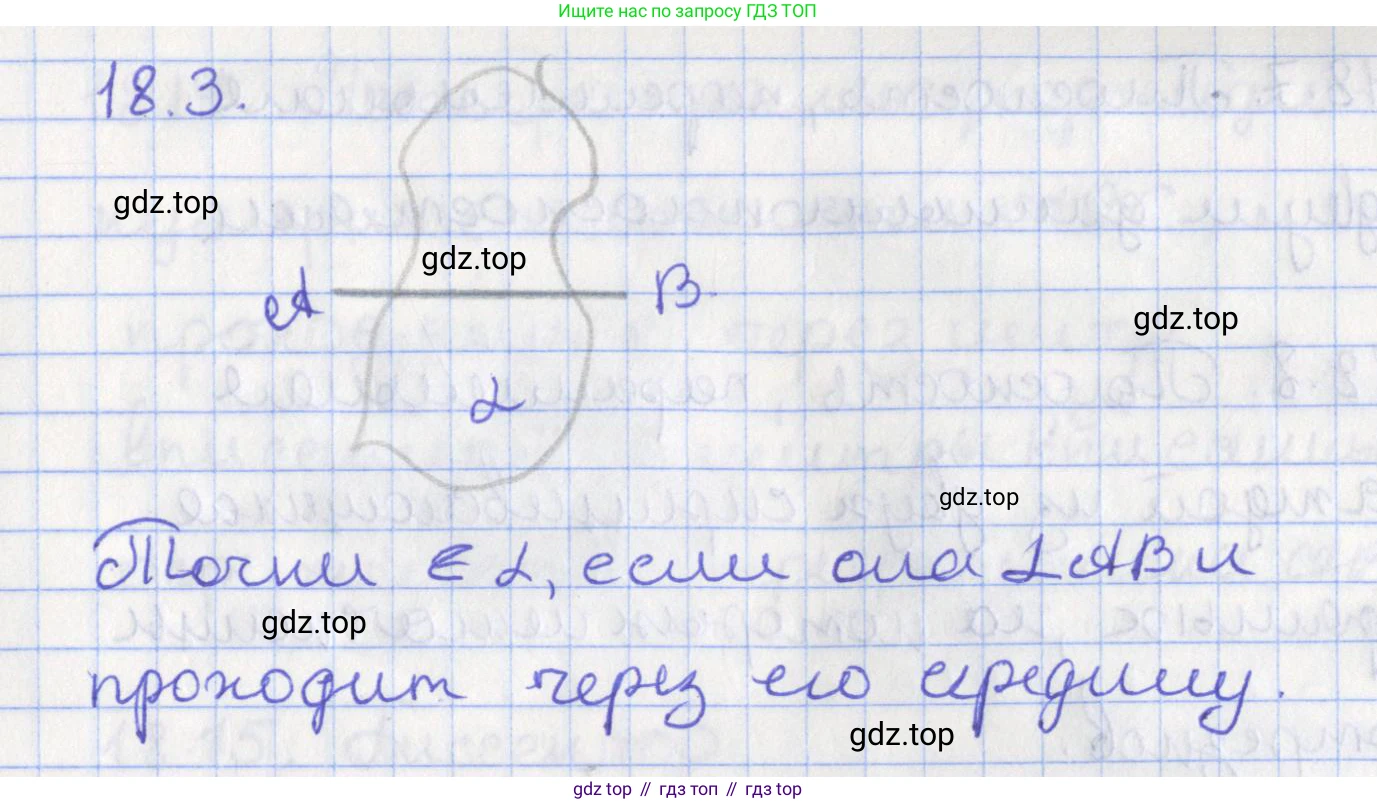 Ищите нас по запросу ГДЗ ТОП
18.3.
gdz.top
gdz.top
A B
gdz.top
α
gdz.top
Точки ∈ α, если она ⊥ AB и
gdz.top
проходит через его середину.
gdz.top
gdz top // гдз топ // гдз top